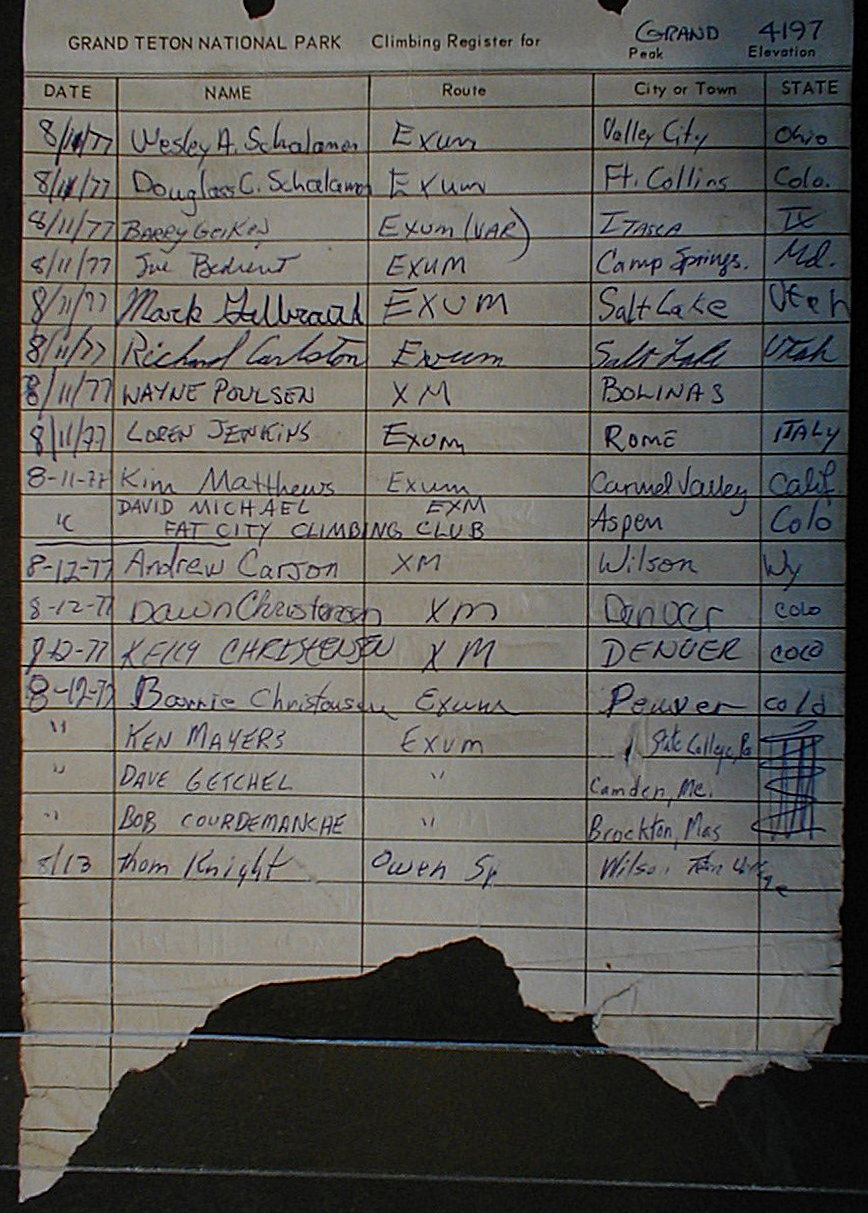 GRAND TETON NATIONAL PARK Climbing Register for GRAND 4197
Peak Elevation
DATE NAME Route City or Town STATE
8/11/77 Wesley A. Schalamon Exum Valley City Ohio
8/11/77 Douglass C. Schalamon Exum Ft. Collins Colo.
8/11/77 BARRY Exum (VAR) ITASCA
8/11/77 EXUM Camp Springs. Md.
8/11/77 Mark EXUM Salt Lake Utah
8/11/77 Richard Carlston Exum Salt Lake Utah
8/11/77 WAYNE POULSEN XM BOLINAS
8/11/77 LOREN JENKINS Exum ROME ITALY
8-11-77 Kim Matthews Exum Carmel Valley Calif.
" DAVID MICHAEL EXM Aspen Colo
FAT CITY CLIMBING CLUB
8-12-77 Andrew Carson XM Wilson Wy
8-12-77 Dawn Christensen XM Denver COLO
8-12-77 KELLY CHRISTENSEN XM DENVER COLO
8-12-77 Barrie Christensen Exum Denver Colo
" KEN MAYERS EXUM State College, Pa
" DAVE GETCHEL " Camden, Me.
" BOB COURDEMANCHE " Brockton, Mas
8/13 Thom Knight Owen Sp Wilson